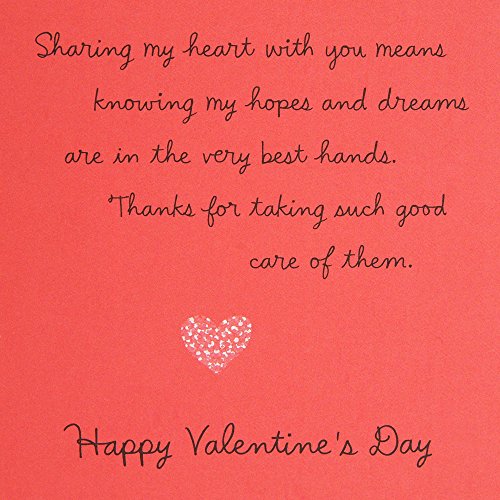 Sharing my heart with you means
knowing my hopes and dreams
are in the very best hands.
Thanks for taking such good
care of them.
Happy Valentine's Day